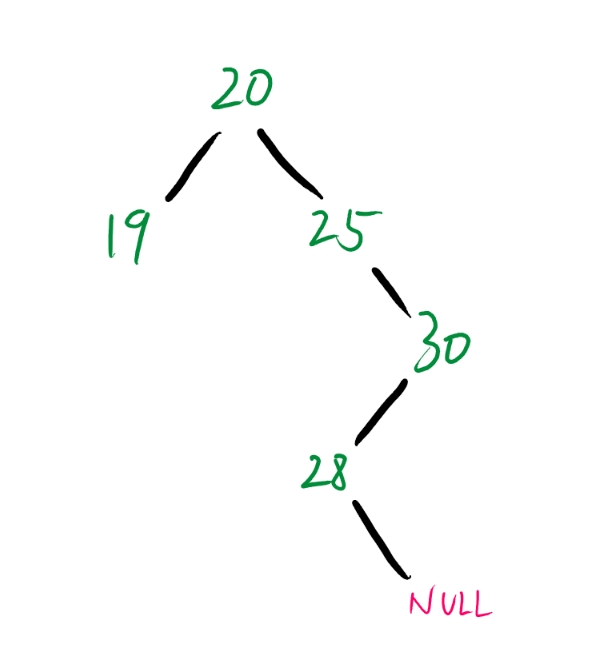 20
19
25
30
28
NULL